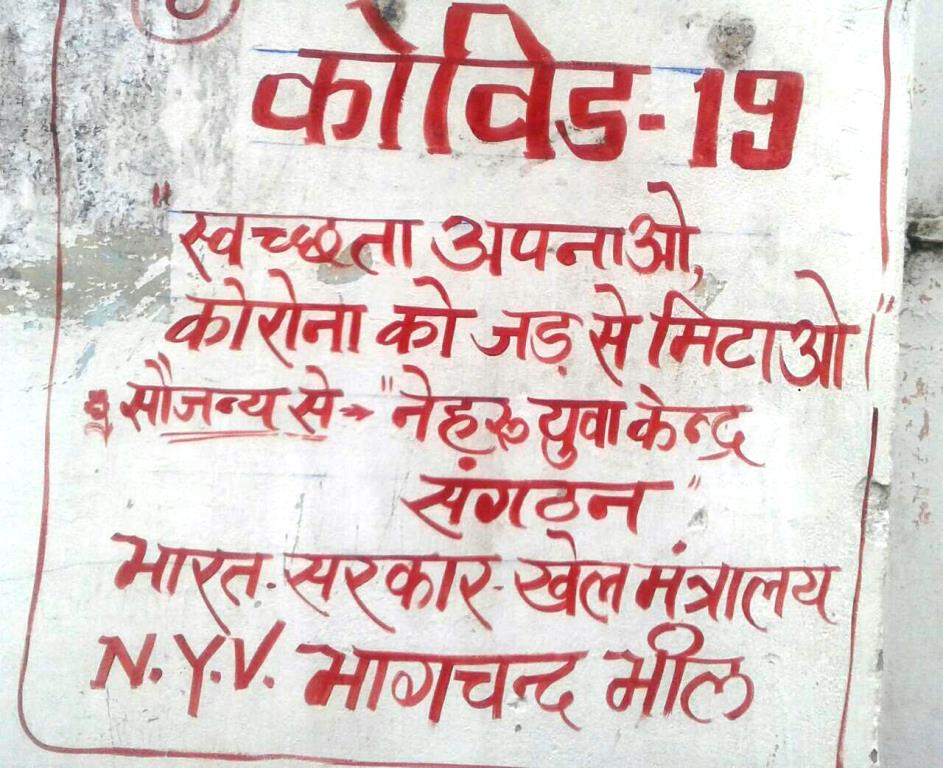 कोविड-19
"स्वच्छता अपनाओ,
कोरोना को जड़ से मिटाओ।"
सौजन्य से → "नेहरू युवा केन्द्र
संगठन"
भारत-सरकार-खेल मंत्रालय
N.Y.V. भागचन्द भील